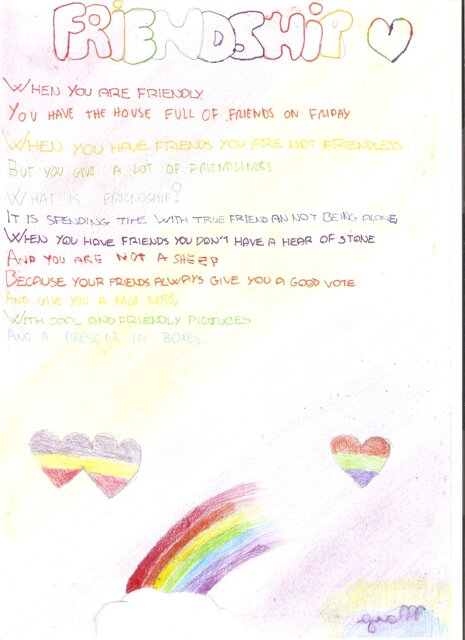 FRIENDSHIP
WHEN YOU ARE FRIENDLY,
YOU HAVE THE HOUSE FULL OF FRIENDS ON FRIDAY
WHEN YOU HAVE FRIENDS YOU ARE NOT FRIENDLESS
BUT YOU GIVE A LOT OF FRIENDLINESS
WHAT IS FRIENDSHIP?
IT IS SPENDING TIME WITH TRUE FRIEND AN NOT BEING ALONE,
WHEN YOU HAVE FRIENDS YOU DON'T HAVE A HEAR OF STONE
AND YOU ARE NOT A SHEEP
BECAUSE YOUR FRIENDS ALWAYS GIVE YOU A GOOD VOTE
AND GIVE YOU A NICE NOTE,
WITH COOL AND FRIENDLY PICTURES
AND A PRESENT IN BOXES.